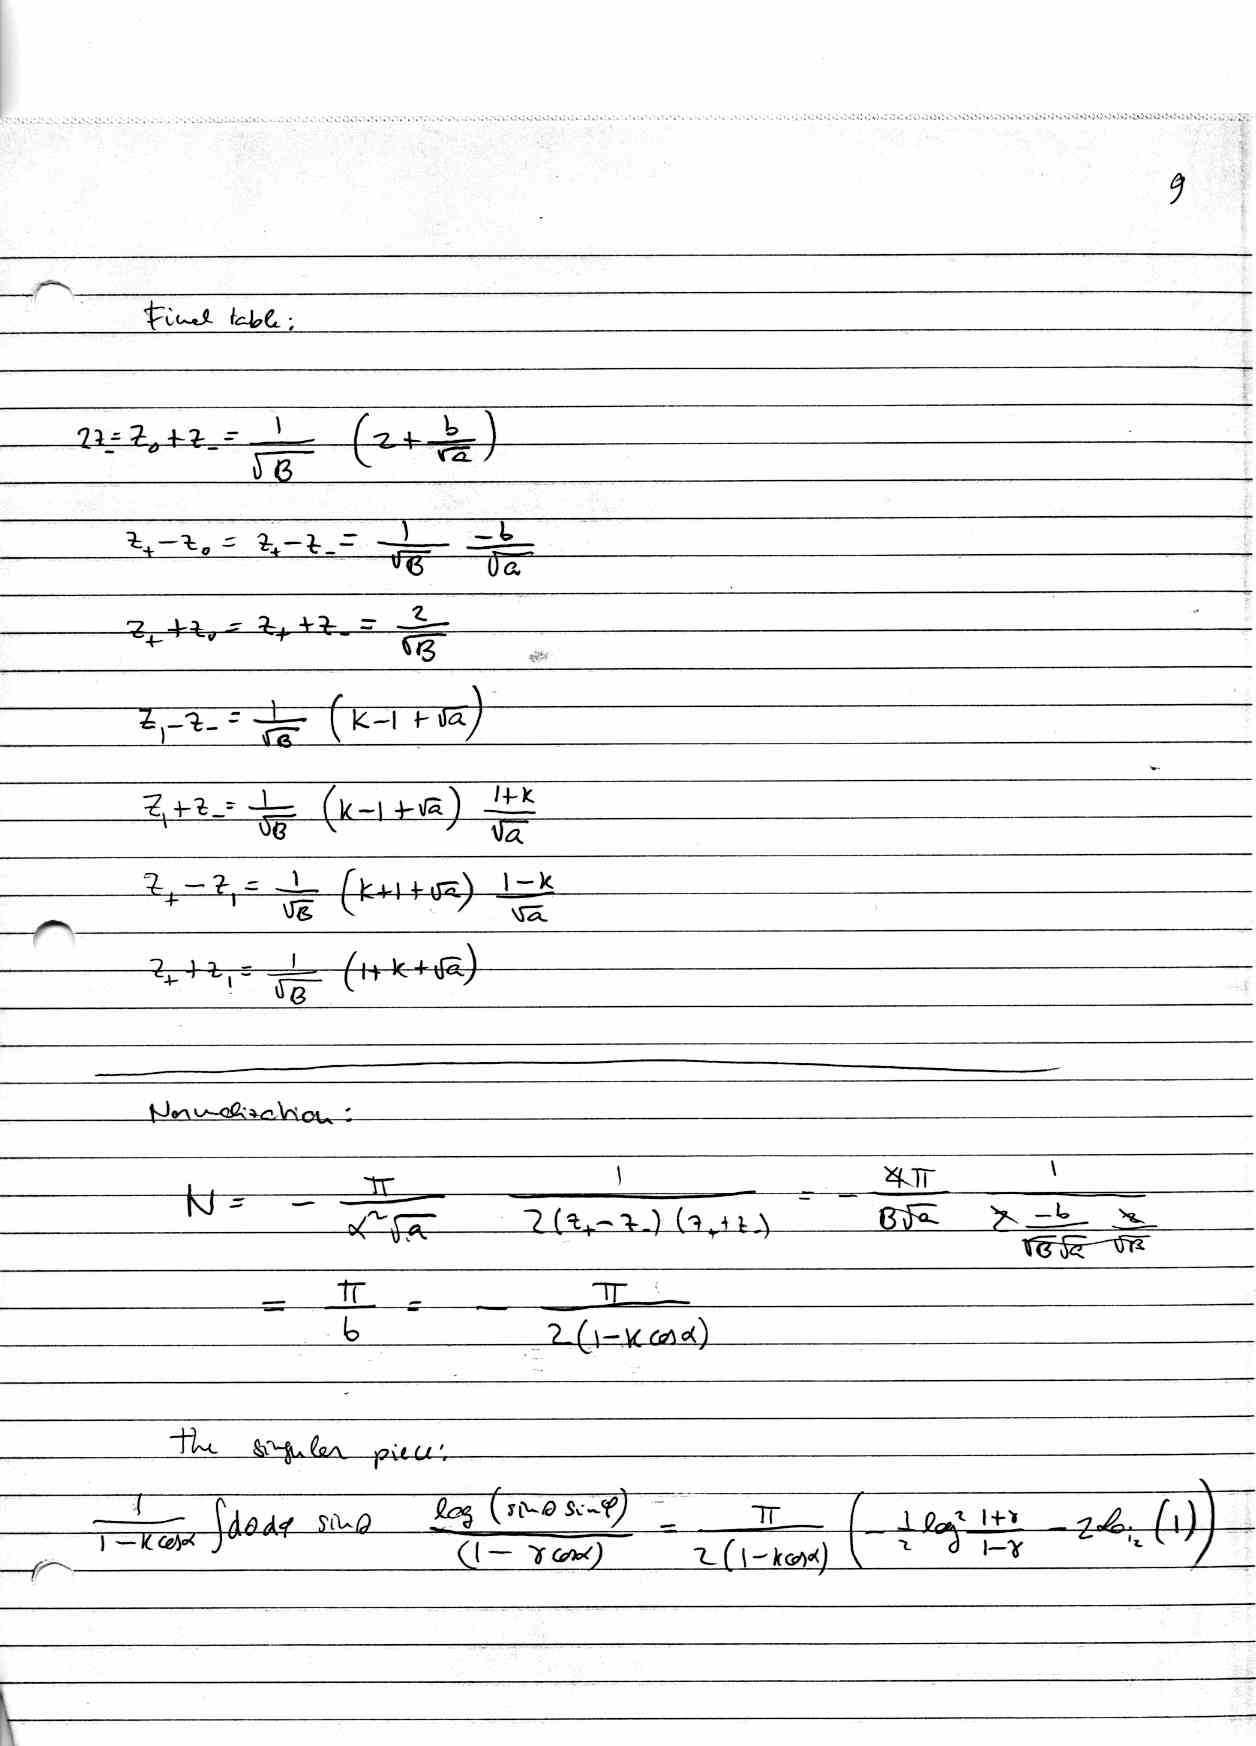 9
Final table:
2z_- = z_0 + z_- = \frac{1}{\sqrt{B}} \left( 2 + \frac{b}{\sqrt{a}} \right)
z_+ - z_0 = z_+ - z_- = \frac{1}{\sqrt{B}} \frac{-b}{\sqrt{a}}
z_+ + z_0 = z_+ + z_- = \frac{2}{\sqrt{B}}
z_1 - z_- = \frac{1}{\sqrt{B}} (k - 1 + \sqrt{a})
z_1 + z_- = \frac{1}{\sqrt{B}} (k - 1 + \sqrt{a}) \frac{1+k}{\sqrt{a}}
z_+ - z_1 = \frac{1}{\sqrt{B}} (k + 1 + \sqrt{a}) \frac{1-k}{\sqrt{a}}
z_+ + z_1 = \frac{1}{\sqrt{B}} (1 + k + \sqrt{a})
Normalization:
N = - \frac{\pi}{\alpha^2 \sqrt{a}} \frac{1}{2(z_+ - z_-)(z_+ + z_-)} = - \frac{4\pi}{B\sqrt{a}} \frac{1}{2 \frac{-b}{\sqrt{B}\sqrt{a}} \frac{2}{\sqrt{B}}}
= \frac{\pi}{b} = - \frac{\pi}{2(1 - k \cos\alpha)}
the singular piece:
\frac{1}{1 - k \cos\alpha} \int d\theta d\varphi \sin\theta \frac{\log(\sin\theta \sin\varphi)}{(1 - \gamma \cos\alpha)} = \frac{\pi}{2(1 - k \cos\alpha)} \left( -\frac{1}{2} \log^2 \frac{1+\gamma}{1-\gamma} - 2 Li_2(1) \right)